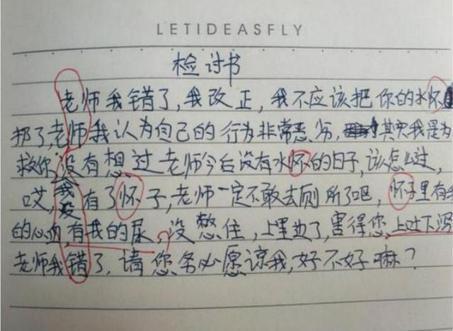 LETIDEASFLY
检讨书
老师我错了,我改正,我不应该把你的水怀
扔了,老师我认为自己的行为非常恶劣,其实我是为
救你,没有想过老师今后没有水怀的日子,该怎么过,
哎,我没有了怀子,老师一定不敢去厕所了吧,怀子里有我
的心血,有我的尿,没憋住,上里边了,害得您,上吐下泻
老师我错了,请您务必愿谅我,好不好嘛?